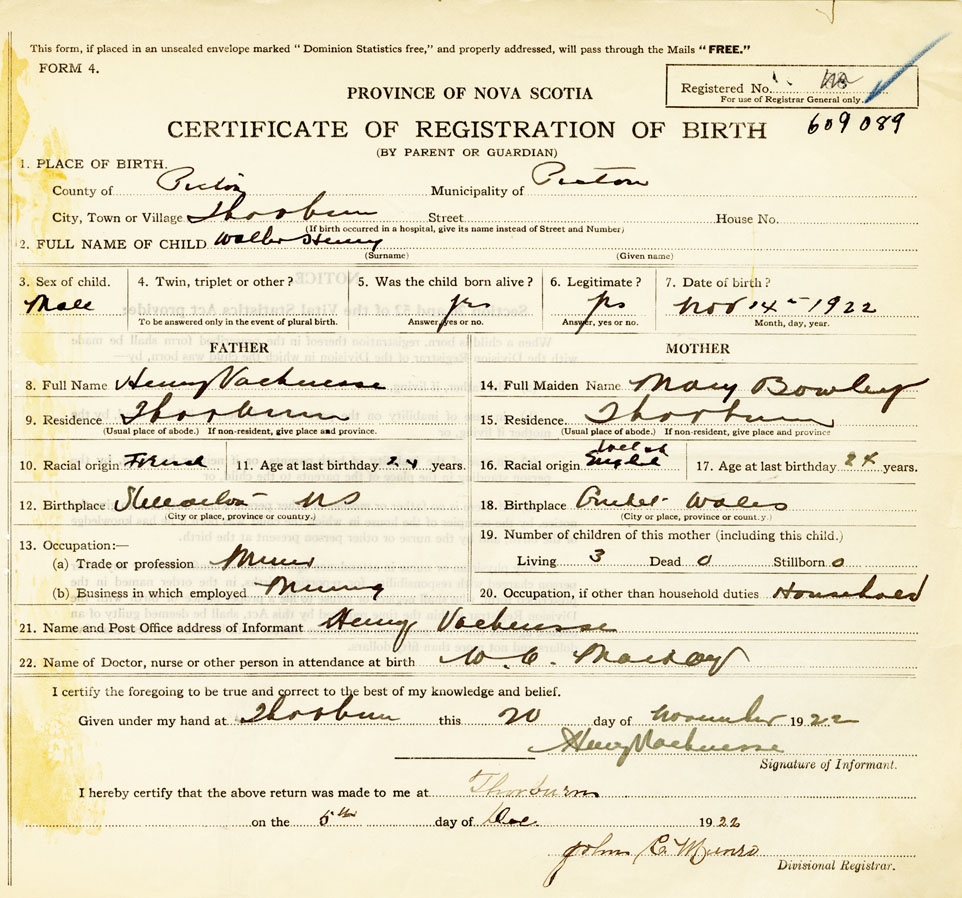 This form, if placed in an unsealed envelope marked " Dominion Statistics free," and properly addressed, will pass through the Mails "FREE."
FORM 4.
Registered No.
For use of Registrar General only.
PROVINCE OF NOVA SCOTIA
CERTIFICATE OF REGISTRATION OF BIRTH
609 089
(BY PARENT OR GUARDIAN)
1. PLACE OF BIRTH.
County of Pictou Municipality of Pictou
City, Town or Village Thorburn Street House No.
(If birth occurred in a hospital, give its name instead of Street and Number)
2. FULL NAME OF CHILD Walter Henry
(Surname) (Given name)
3. Sex of child. 4. Twin, triplet or other? 5. Was the child born alive? 6. Legitimate? 7. Date of birth?
Male yes yes Nov 14 - 1922
To be answered only in the event of plural birth. Answer, yes or no. Answer, yes or no. Month, day, year.
FATHER MOTHER
8. Full Name Henry Vacheresse 14. Full Maiden Name Mary Bowley
9. Residence Thorburn 15. Residence Thorburn
(Usual place of abode.) If non-resident, give place and province. (Usual place of abode.) If non-resident, give place and province
10. Racial origin French 11. Age at last birthday 24 years. 16. Racial origin English 17. Age at last birthday 24 years.
12. Birthplace Stellarton NS 18. Birthplace Wales
(City or place, province or country.) (City or place, province or country.)
13. Occupation:— 19. Number of children of this mother (including this child.)
(a) Trade or profession Miner Living 3 Dead 0 Stillborn 0
(b) Business in which employed Mining 20. Occupation, if other than household duties Household
21. Name and Post Office address of Informant Henry Vacheresse
22. Name of Doctor, nurse or other person in attendance at birth W. C. MacKay
I certify the foregoing to be true and correct to the best of my knowledge and belief.
Given under my hand at Thorburn this 20 day of November 1922
Henry Vacheresse
Signature of Informant.
I hereby certify that the above return was made to me at Thorburn
on the 5th day of Dec 1922
John C. Munro
Divisional Registrar.